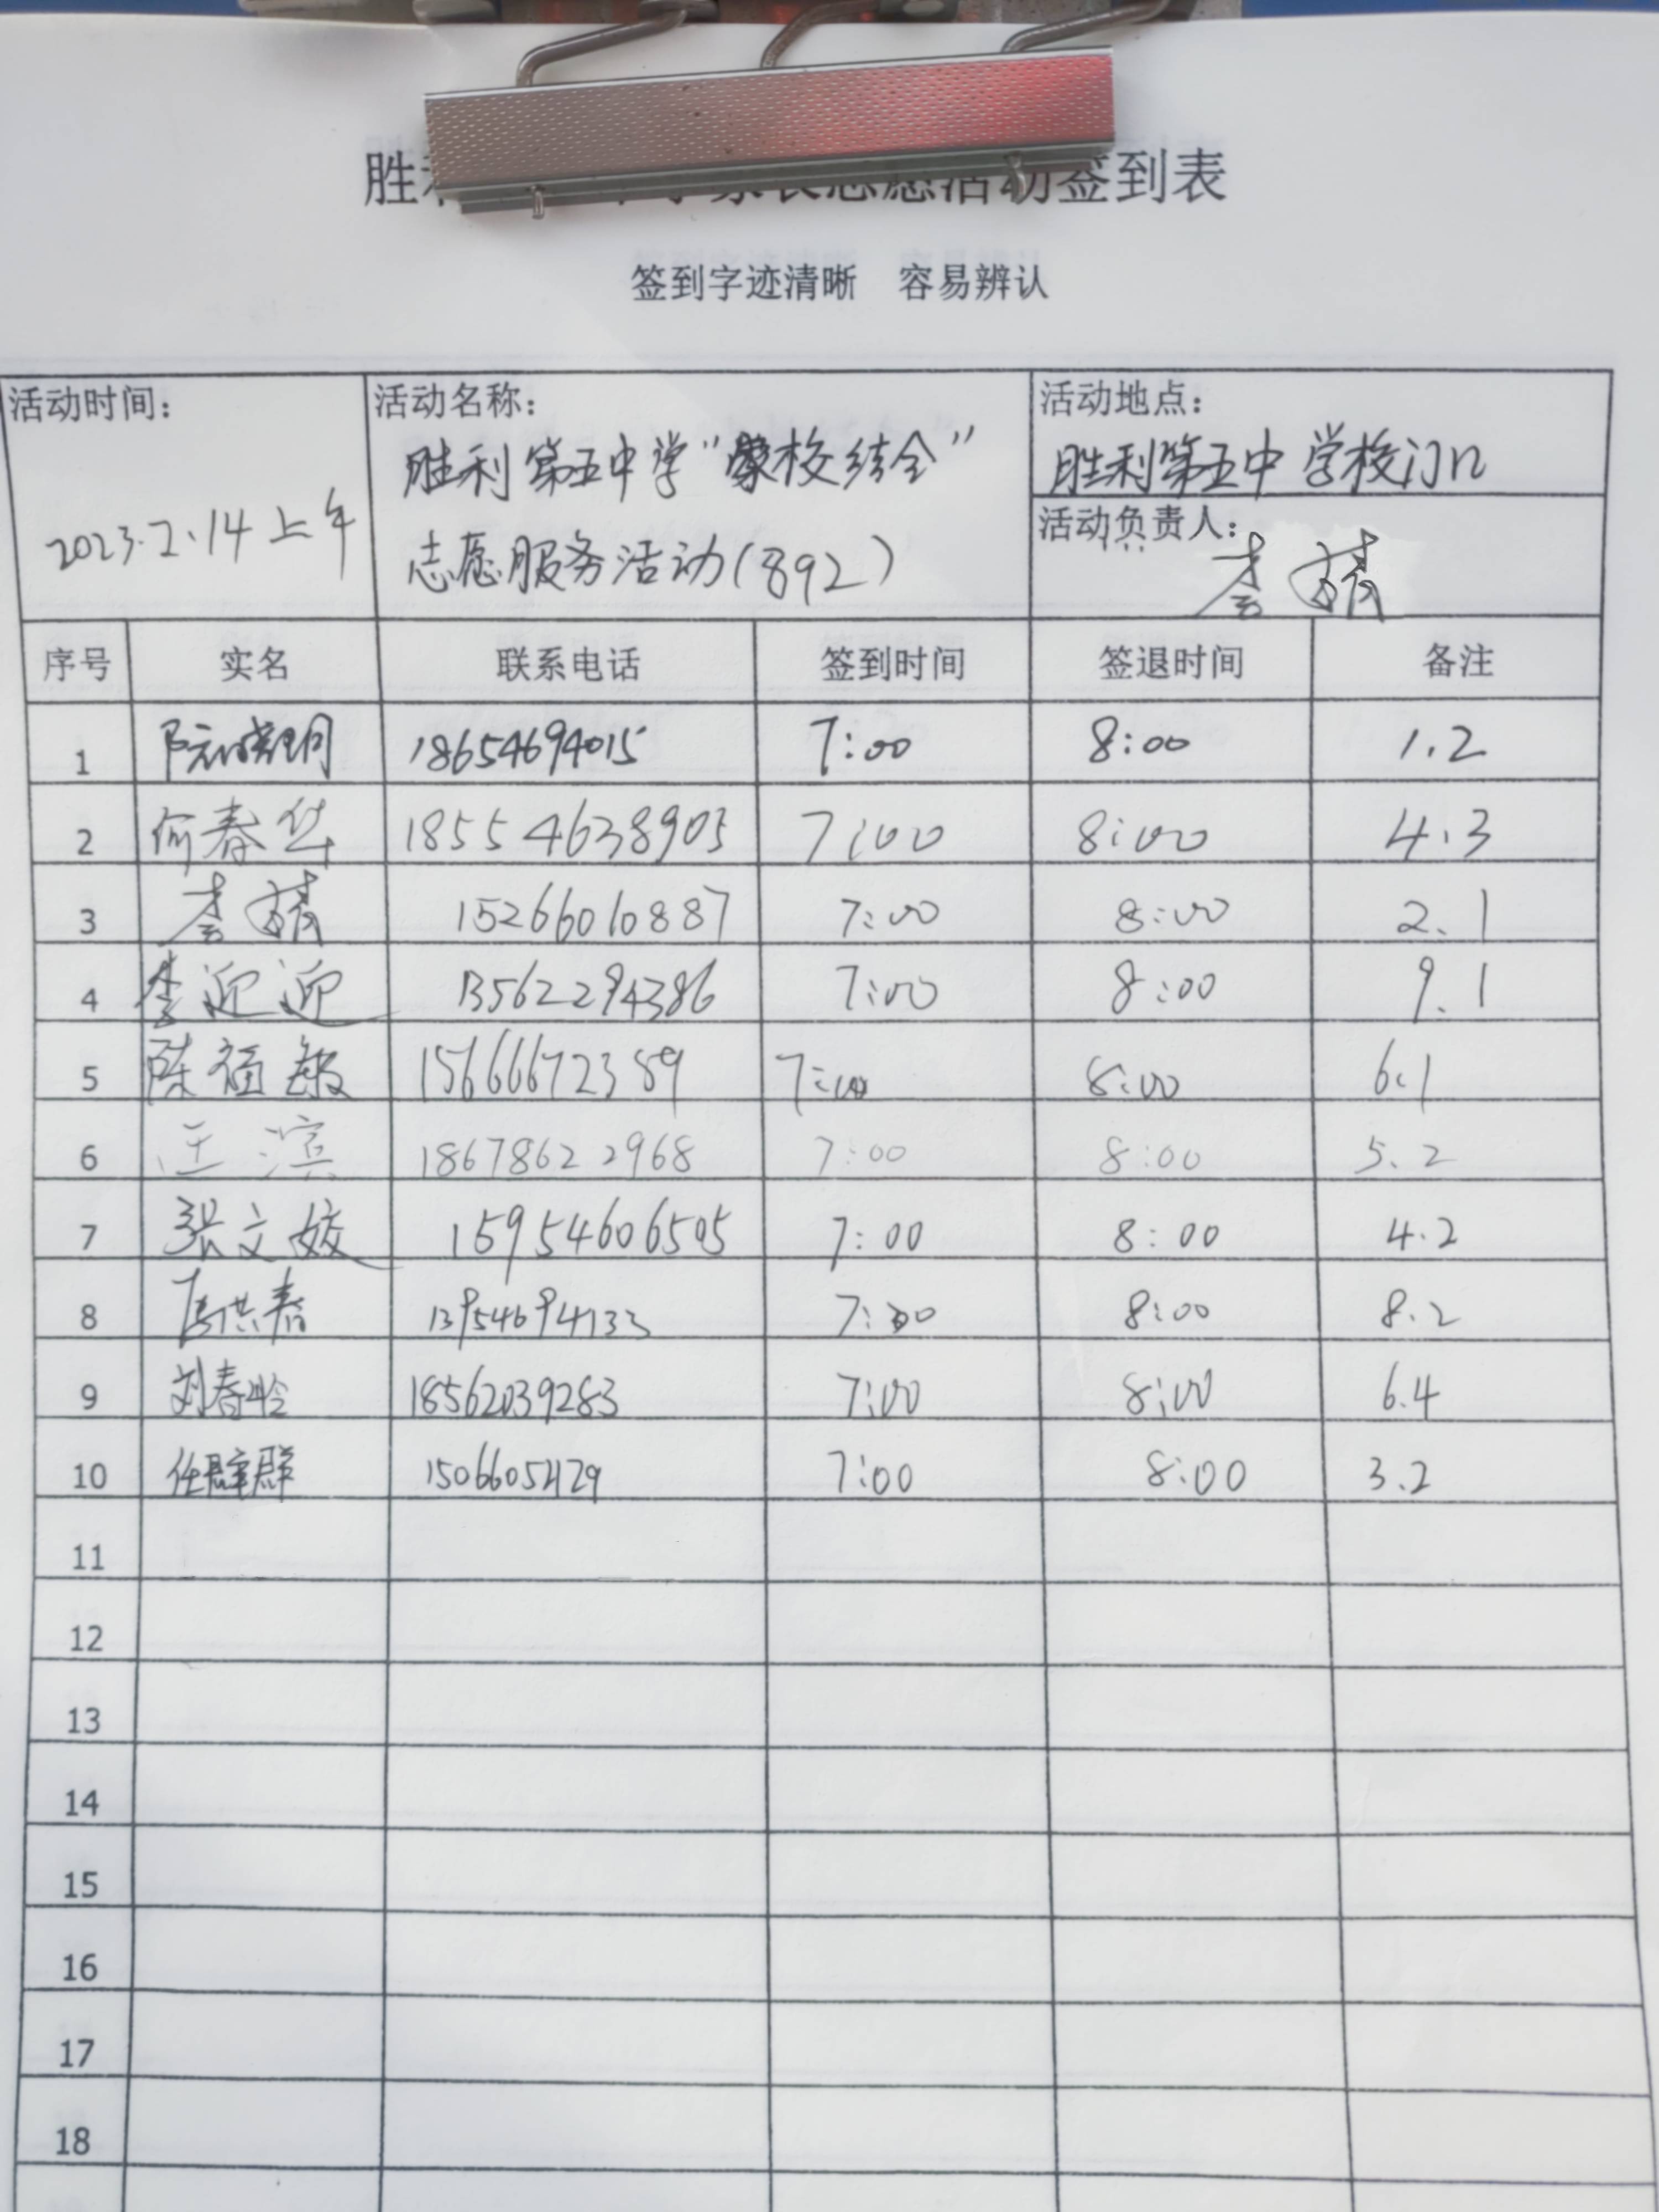 胜 家长志愿活动签到表
签到字迹清晰 容易辨认
活动时间: 2023.2.14上午
活动名称:
胜利第五中学“家校结合”
志愿服务活动(892)
活动地点:
胜利第五中学校门口
活动负责人:
李 婧
序号 实名 联系电话 签到时间 签退时间 备注
1 18654694015 7:00 8:00 1.2
2 何春华 18554638905 7:00 8:00 4.3
3 李婧 15266010887 7:00 8:00 2.1
4 李迎迎 13562294386 7:00 8:00 9.1
5 陈福敏 15666672389 7:00 8:00 6.1
6 王滨 18678622968 7:00 8:00 5.2
7 张文姣 15954606505 7:00 8:00 4.2
8 13954694133 7:00 8:00 8.2
9 刘春玲 18562039283 7:00 8:00 6.4
10 任群群 7:00 8:00 3.2
11
12
13
14
15
16
17
18